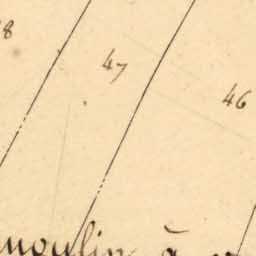 8
47
46
moulin à